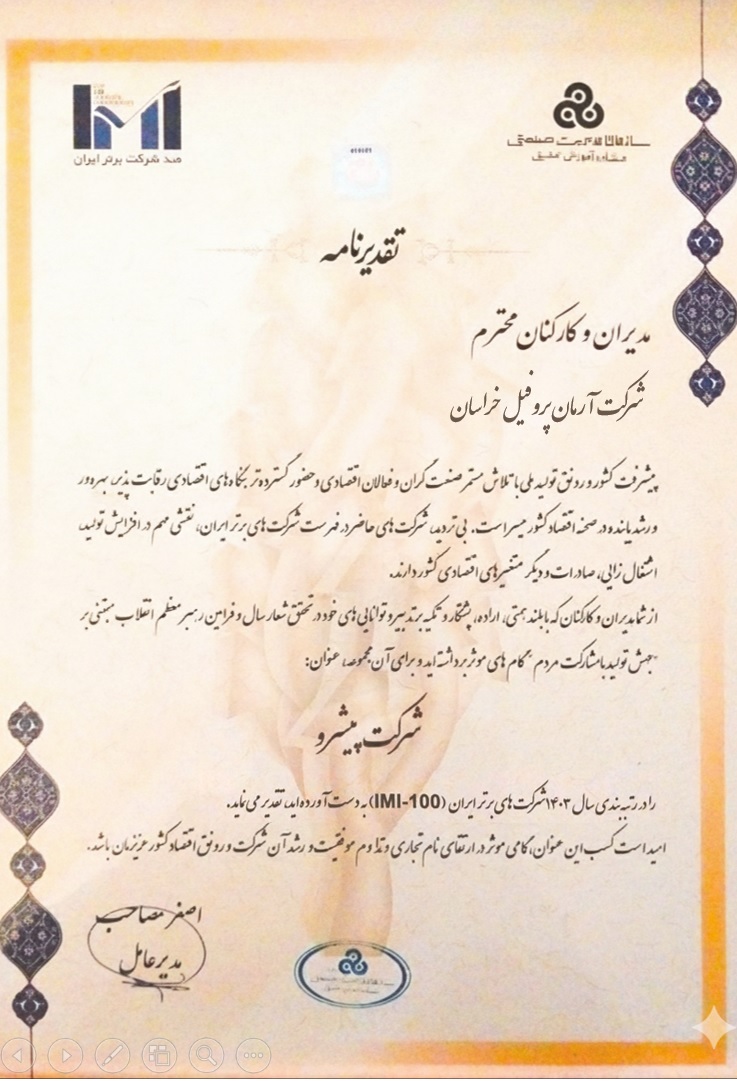 صد شرکت برتر ایران
سازمان مدیریت صنعتی
مشاوره آموزش تحقیق
تقدیرنامه
مدیران و کارکنان محترم
شرکت آرمان پروفیل خراسان
پیشرفت کشور و رونق تولید ملی با تلاش مستمر صنعت گران و فعالان اقتصادی و حضور گسترده تر بنگاه های اقتصادی رقابت پذیر، بهره ور
و رشد یابنده در صحنه اقتصاد کشور میسر است. بی تردید، شرکت های حاضر در فهرست شرکت های برتر ایران، نقشی مهم در افزایش تولید،
اشتغال زایی، صادرات و دیگر متغیرهای اقتصادی کشور دارند.
از شما مدیران و کارکنان که با بلند همتی، اراده، پشتکار و تکیه بر تدبیر و توانایی های خود در تحقق شعار سال و فرامین رهبر معظم انقلاب مبتنی بر
"جهش تولید با مشارکت مردم" گام های موثر برداشته اید و برای آن مجموعه، عنوان:
شرکت پیشرو
را در رتبه بندی سال ۱۴۰۳ شرکت های برتر ایران (IMI-100) به دست آورده اید، تقدیر می نماید.
امید است کسب این عنوان، گامی موثر در ارتقای نام تجاری و تداوم موفقیت و رشد آن شرکت و رونق اقتصاد کشور عزیزمان باشد.
اصغر مصاحب
مدیرعامل